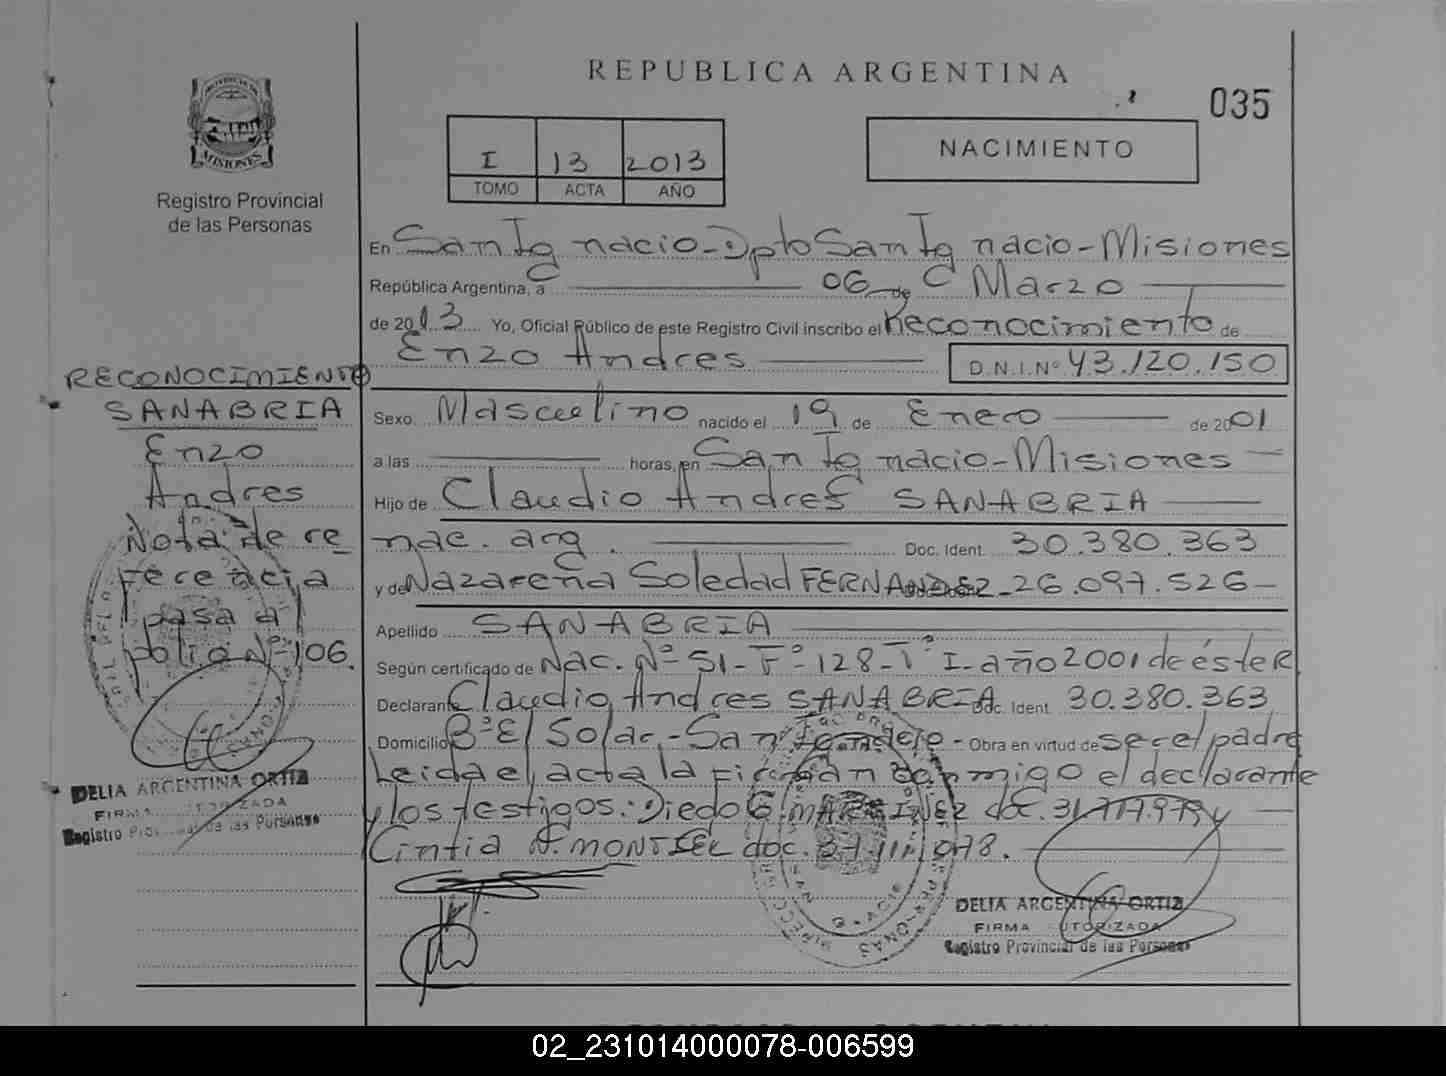 REPUBLICA ARGENTINA
035
I 13 2013
TOMO ACTA AÑO
NACIMIENTO
MISIONES
Registro Provincial
de las Personas
En San Ignacio - Dpto San Ignacio - Misiones
República Argentina, a 06 de Marzo
de 2013 Yo, Oficial Público de este Registro Civil inscribo el Reconocimiento de
Enzo Andres D.N.I.Nº 43.120.150
RECONOCIMIENTO
SANABRIA
Enzo
Andres
Nota de re
ferencia
pasa al
folio Nº 106.
DELIA ARGENTINA ORTIZ
FIRMA AUTORIZADA
Registro Provincial de las Personas
Sexo Masculino nacido el 19 de Enero de 2001
a las horas, en San Ignacio - Misiones
Hijo de Claudio Andres SANABRIA
nac. arg. Doc. Ident. 30.380.363
y de Nazarena Soledad FERNANDEZ - 26.097.526
Apellido SANABRIA
Según certificado de Nac. Nº 51 - Fº 128 - Tº I - año 2001 de éste R
Declarante Claudio Andres SANABRIA Doc. Ident. 30.380.363
Domicilio Bº El Solar - San Ignacio - Obra en virtud de ser el padre
Leida el acta la firman conmigo el declarante
y los testigos: Diego G. MARTINEZ doc. y
Cintia N. MONTIEL doc.
DELIA ARGENTINA ORTIZ
FIRMA AUTORIZADA
Registro Provincial de las Personas
02_231014000078-006599